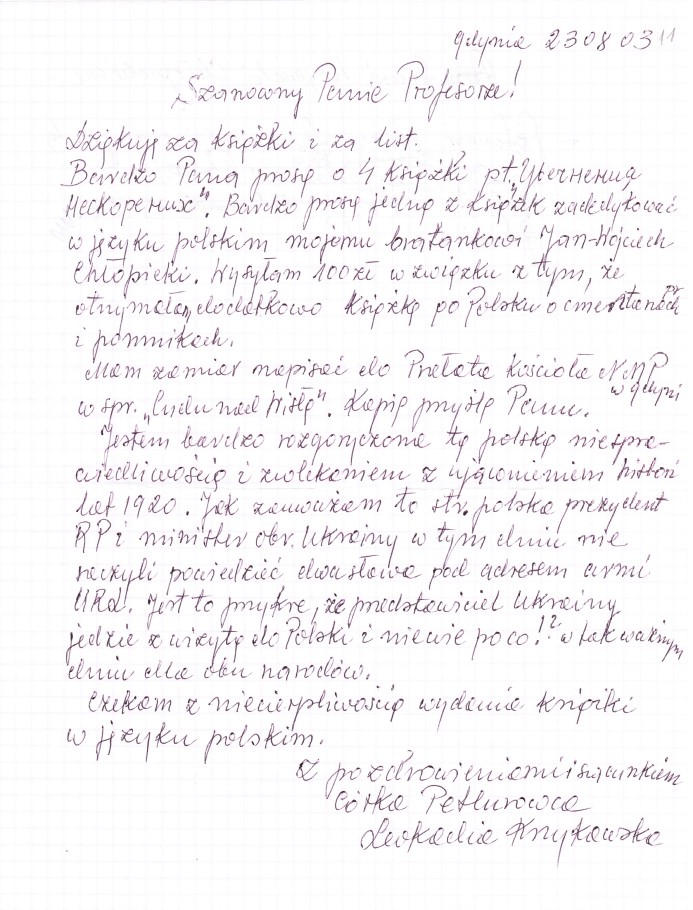 Gdynia 23 08 03 11
Szanowny Panie Profesorze!
Dziękuję za książki i za list.
Bardzo Pana proszę o 4 książki pt. „Уbегненид
Нескорених". Bardzo proszę jedną z książek zadedykować
w języku polskim mojemu bratankowi Jan-Wojciech
Chłopicki. Wysyłam 100 zł w związku z tym, że
otrzymałam dodatkowo książkę po Polsku o cmentarzach
i pomnikach.
Mam zamiar napisać do Prałata Kościoła NMP
w Gdyni
w spr. „Cudu nad Wisłą". Kopię prześlę Panu.
Jestem bardzo rozgoryczona tą polską niespra-
wiedliwością i zwlekaniem z ujawnieniem histori
lat 1920. Jak zauważam to str. polska prezydent
RP i minister obr. Ukrainy w tym dniu nie
raczyli powiedzieć dwa słowa pod adresem armi
URL. Jest to przykre, że przedstawiciel Ukrainy
jedzie z wizytą do Polski i nie wie po co!? w tak ważnym
dniu dla obu narodów.
Czekam z niecierpliwością wydania książki
w języku polskim.
Z pozdrowieniami i szacunkiem
Córka Petlurowca
Leokadia Krzykawska